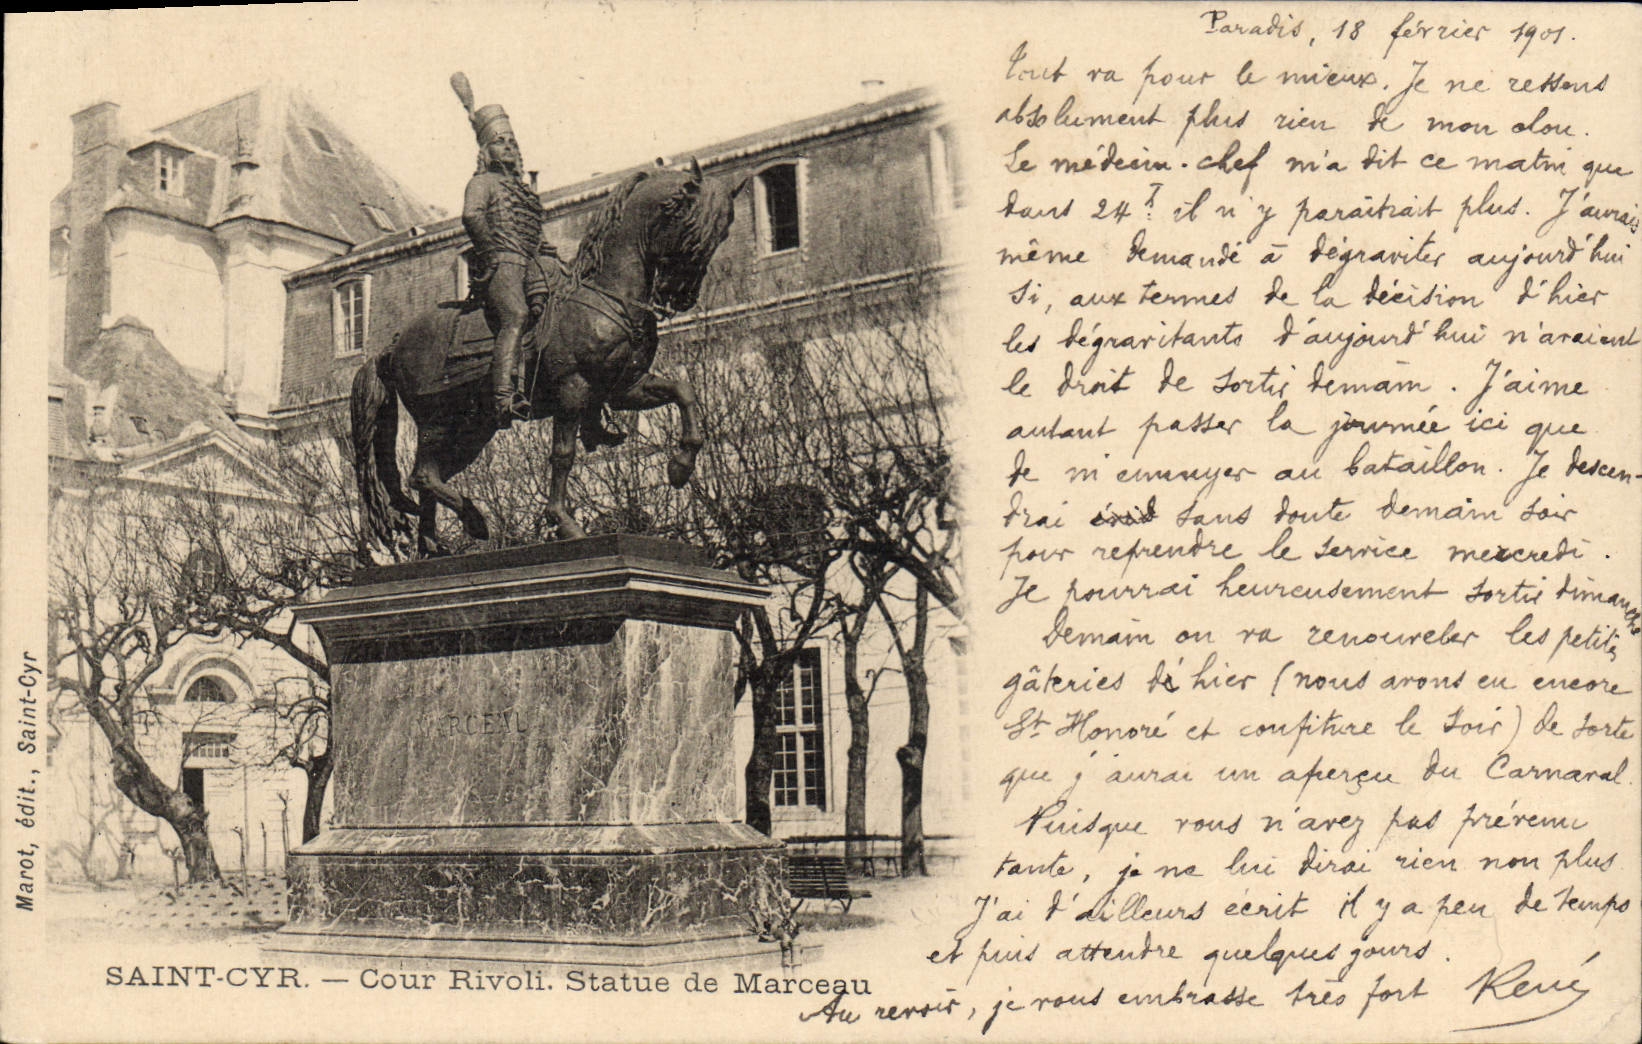 Paradis, 18 février 1901.
Tout va pour le mieux. Je ne ressens
absolument plus rien de mon clou.
Le médecin-chef m'a dit ce matin que
dans 24 h. il n'y paraîtrait plus. J'aurais
même demandé à dégraviter aujourd'hui
si, aux termes de la décision d'hier
les dégravitants d'aujourd'hui n'avaient
le droit de sortir demain. J'aime
autant passer la journée ici que
de m'ennuyer au bataillon. Je descen-
drai sans doute demain soir
pour reprendre le service mercredi.
Je pourrai heureusement sortir dimanche
Demain on va renouveler les petites
gâteries d'hier (nous avons eu encore
St Honoré et confiture le soir) de sorte
que j'aurai un aperçu du Carnaval.
Puisque vous n'avez pas prévenu
tante, je ne lui dirai rien non plus
J'ai d'ailleurs écrit il y a peu de temps
et puis attendre quelques jours.
Au revoir, je vous embrasse très fort René
MARCEAU
SAINT-CYR. — Cour Rivoli. Statue de Marceau
Marot, édit., Saint-Cyr